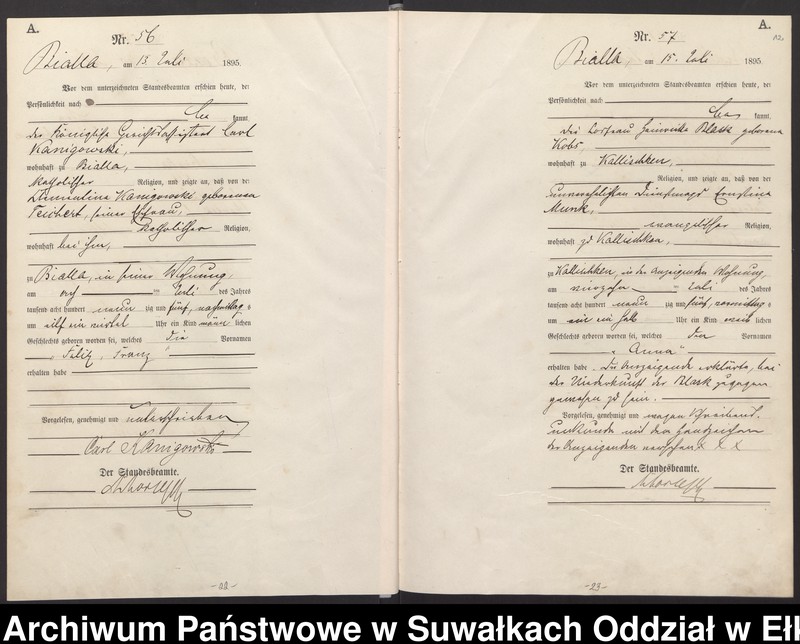 A.
Nr. 56
Bialla, am 13. Juli 1895.
Vor dem unterzeichneten Standesbeamten erschien heute, der
Persönlichkeit nach
kannt,
der Königliche Gerichtsassistent Carl
Kanigowski,
wohnhaft zu Bialla,
katholischer Religion, und zeigte an, daß von der
Clementine Kanigowski geborenen
Teichert, seiner Ehefrau,
katholischer Religion,
wohnhaft bei ihm,
zu Bialla, in seiner Wohnung,
am Juli des Jahres
tausend acht hundert neun zig und fünf, nachmittags
um elf ein viertel Uhr ein Kind männ lichen
Geschlechts geboren worden sei, welches die Vornamen
„Felix, Franz“
erhalten habe
Vorgelesen, genehmigt und unterschrieben
Carl Kanigowski
Der Standesbeamte.
-22-
A.
Nr. 57
Bialla am 15. Juli 1895.
Vor dem unterzeichneten Standesbeamten erschien heute, der
Persönlichkeit nach
kannt,
die geborene
Kobs
wohnhaft zu Kallischken,
Religion, und zeigte an, daß von der
unverehelichten Dienstmagd Ernstine
Munk,
evangelischer Religion,
wohnhaft zu Kallischken,
zu Kallischken, in der Anzeigenden Wohnung,
am vierzehn Juli des Jahres
tausend acht hundert neun zig und fünf, vormittags
um ein halb Uhr ein Kind weib lichen
Geschlechts geboren worden sei, welches den Vornamen
„Anna“
erhalten habe. Die Anzeigende erklärte, bei
der Niederkunft der zugegen
gewesen zu sein.
Vorgelesen, genehmigt und wegen Schreibens-
unkunde mit dem Handzeichen
der Anzeigenden versehen x x x
Der Standesbeamte.
-23-
Archiwum Państwowe w Suwałkach Oddział w Ełk